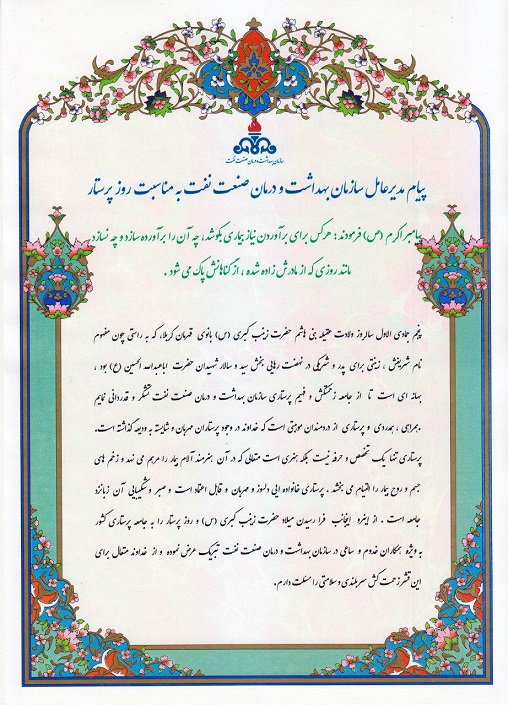 سازمان بهداشت و درمان صنعت نفت
پیام مدیرعامل سازمان بهداشت و درمان صنعت نفت به مناسبت روز پرستار
پیامبر اکرم (ص) فرمودند : هرکس برای برآوردن نیاز بیماری بکوشد، چه آن را برآورده سازد و چه نسازد
مانند روزی که از مادرش زاده شده ، از گناهانش پاک می شود .
پنجم جمادی الاول سالروز ولادت عقیله بنی هاشم حضرت زینب کبری (س) بانوی قهرمان کربلا، که به راستی چون مفهوم
نام شریفش ، زینتی برای پدر و شریکی در نهضت رهایی بخش سید و سالار شهیدان حضرت اباعبدالله الحسین (ع) بود ،
بهانه ای است تا از جامعه زحمتکش و فهیم پرستاری سازمان بهداشت و درمان صنعت نفت تشکر و قدردانی نمایم
.همراهی ، همدردی و پرستاری از دردمندان موهبتی است که خداوند در وجود پرستاران مهربان و شایسته به ودیعه گذاشته است.
پرستاری تنها یک تخصص و حرفه نیست بلکه هنری است متعالی که در آن هنرمند آلام بیمار را مرهم می نهد و زخم های
جسم و روح بیمار را التیام می بخشد . پرستاری خانواده ایی دلسوز و مهربان و قابل اعتماد است و صبر و شکیبایی آن زبانزد
جامعه است . از اینرو اینجانب فرا رسیدن میلاد حضرت زینب کبری (س) و روز پرستار را به جامعه پرستاری کشور
به ویژه همکاران خدوم و ساعی در سازمان بهداشت و درمان صنعت نفت تبریک عرض نموده و از خداوند متعال برای
این قشر زحمت کش سربلندی و سلامتی را مسئلت دارم.